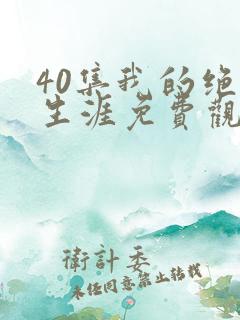 40集我的绝
生涯免費觀
衛計委
未任同意禁止转载